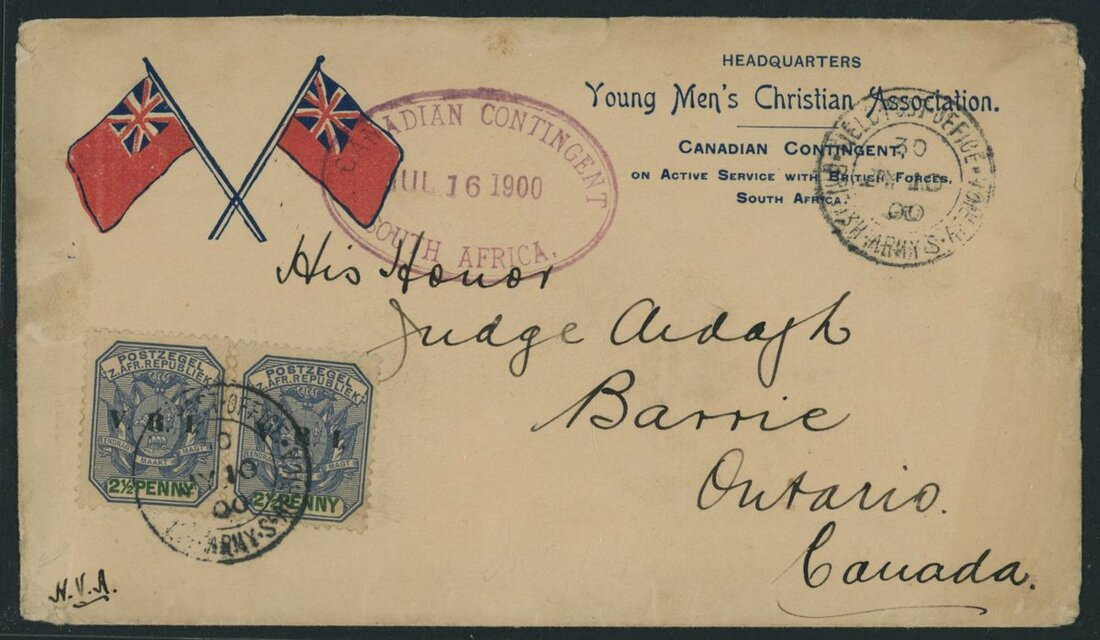 HEADQUARTERS
Young Men's Christian Association.
CANADIAN CONTINGENT,
ON ACTIVE SERVICE WITH BRITISH FORCES,
SOUTH AFRICA.
CANADIAN CONTINGENT
JUL 16 1900
SOUTH AFRICA.
FIELD POST OFFICE
30
10
00
BRITISH ARMY S. AFRICA
His Honor
Judge Ardagh
Barrie
Ontario.
Canada.
POSTZEGEL
Z. AFR. REPUBLIEK
V. R. I.
EENDRAGT MAAKT MAGT
2½ PENNY
POSTZEGEL
Z. AFR. REPUBLIEK
R. I.
MAAKT MAGT
2½ PENNY
OFFICE
10
00
ARMY S.
H.V.A.